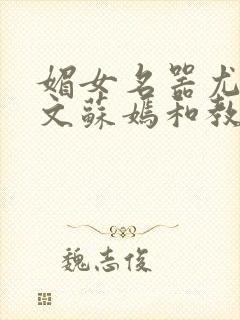 媚女名器尤
文蘇媽和教
魏志俊